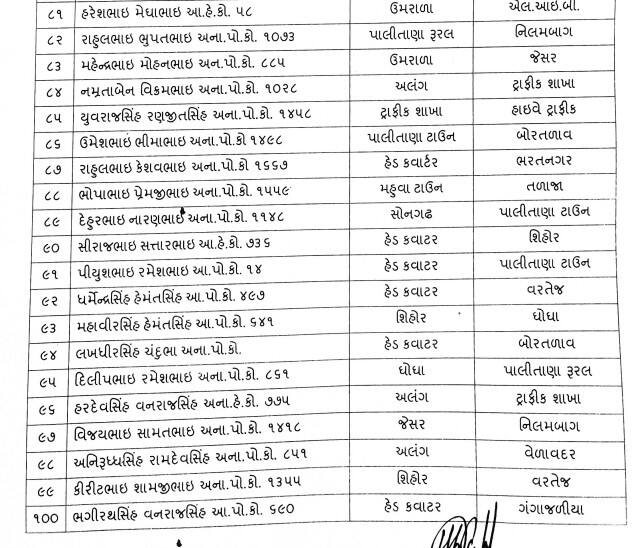 ૮૧ હરેશભાઇ મેઘાભાઇ આ.હે.કો. ૫૮ ઉમરાળા એલ.આઇ.બી.
૮૨ રાહુલભાઇ ભુપતભાઇ અના.પો.કો. ૧૦૭૩ પાલીતાણા રૂરલ નિલમબાગ
૮૩ મહેન્દ્રભાઇ મોહનભાઇ અન.પો.કો. ૮૮૫ ઉમરાળા જેસર
૮૪ નમ્રતાબેન વિક્રમભાઇ અના.પો.કો. ૧૦૨૮ અલંગ ટ્રાફીક શાખા
૮૫ યુવરાજસિંહ રણજીતસિંહ અના.પો.કો. ૧૪૫૮ ટ્રાફીક શાખા હાઇવે ટ્રાફીક
૮૬ ઉમેશભાઇ ભીમાભાઇ અના.પો.કો ૧૪૯૮ પાલીતાણા ટાઉન બોરતળાવ
૮૭ રાહુલભાઇ કેશવભાઇ અના.પો.કો ૧૬૬૭ હેડ કવાર્ટર ભરતનગર
૮૮ ભોપાભાઇ પ્રેમજીભાઇ અના.પો.કો. ૧૫૫૯ મહુવા ટાઉન તળાજા
૮૯ દેહુરભાઇ નારણભાઇ અના.પો.કો. ૧૧૪૮ સોનગઢ પાલીતાણા ટાઉન
૯૦ સીરાજભાઇ સત્તારભાઇ આ.હે.કો. ૭૩૬ હેડ કવાટર શિહોર
૯૧ પીયુશભાઇ રમેશભાઇ આ.પો.કો. ૧૪ હેડ કવાટર પાલીતાણા ટાઉન
૯૨ ધર્મેન્દ્રસિંહ હેમંતસિંહ આ.પો.કો. ૪૯૭ હેડ કવાટર વરતેજ
૯૩ મહાવીરસિંહ હેમંતસિંહ આ.પો.કો. ૬૪૧ શિહોર ઘોઘા
૯૪ લખધીરસિંહ ચંદુભા અના.પો.કો. હેડ કવાટર બોરતળાવ
૯૫ દિલીપભાઇ રમેશભાઇ અના.પો.કો. ૮૬૧ ઘોઘા પાલીતાણા રૂરલ
૯૬ હરદેવસિંહ વનરાજસિંહ અના.હે.કો. ૭૭૫ અલંગ ટ્રાફીક શાખા
૯૭ વિજયભાઇ સામતભાઇ અના.પો.કો. ૧૪૧૮ જેસર નિલમબાગ
૯૮ અનિરૂધ્ધસિંહ રામદેવસિંહ અના.પો.કો. ૮૫૧ અલંગ વેળાવદર
૯૯ કીરીટભાઇ શામજીભાઇ અના.પો.કો. ૧૩૫૫ શિહોર વરતેજ
૧૦૦ ભગીરથસિંહ વનરાજસિંહ આ.પો.કો. ૬૯૦ હેડ કવાટર ગંગાજળીયા